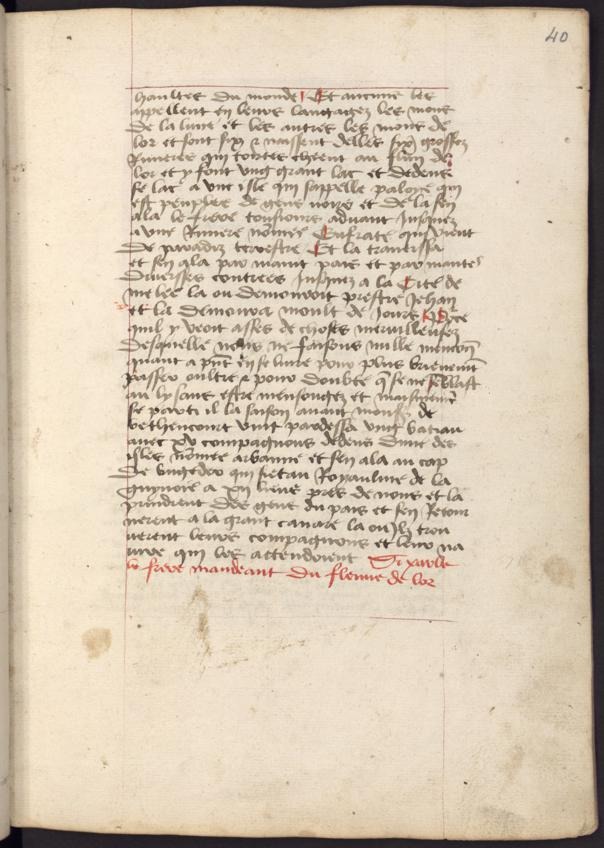 40
haultes du monde Et aucuns les
appellent en leurs langagez les mons
de la lune et les autres les mons de
lor et sont six & naissent delles six grossez
Riuieres qui toutes cheent au flun de
lor et y font vng grant lac et dedens
se lac a vne isle qui sappelle paloye qui
est peuplee de gens noirs et de la sen
ala le frere tousiours auant Jusquez
a vne Riuiere nomee Eufrate qui vient
de paradiz terrestre Et la trauerssa
et sen ala par maint pais et par maintes
diuersses contrees Jusquez a la Cite de
melee la ou demouroit prestre Jehan
et la demoura moult de Jours Pce
quil y veoit asses de choses merueilleusez
desquelle nous ne faisons nulle mencion
quant a pnt en se liure pour plus briefuement
passer oultre & pour doubte q se ne semblast
au lysans estre mensongez et
se parti il la saison auant monsr de
bethencourt vint pardessa vint batiau
auec xv compagnons dedens dune des
isles nomee arbanne et sen ala au cap
de bugeder qui siet au Royaulme de la
guynoie a xii lieues pres de nous et la
prindrent des gens du pais et sen Retour
nerent a la grant canare la ou Ilz trou
uerent leurs compagnons et leur na
uire qui les actendoient Si parle
le frere mandeant du fleuue de lor